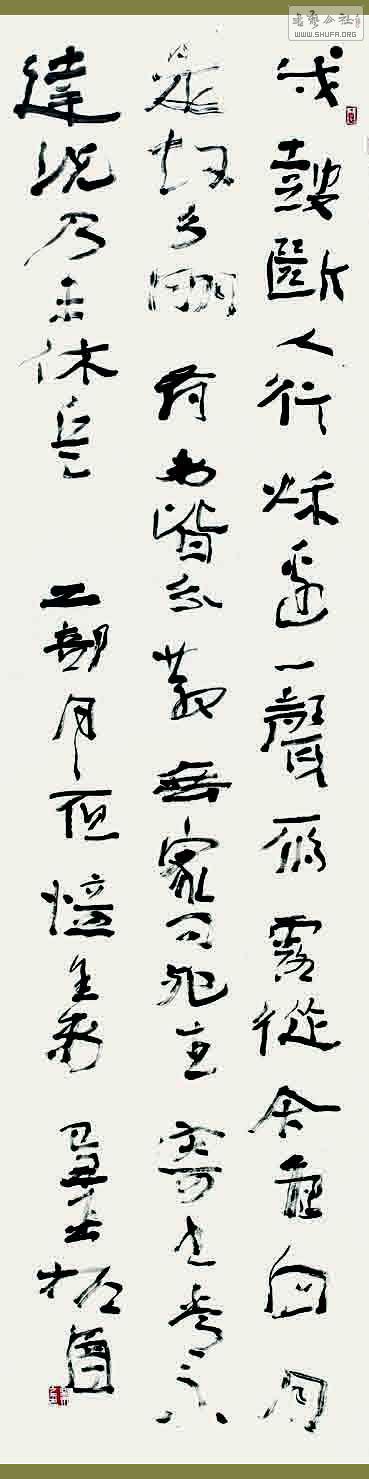 戍鼓斷人行秋邊一聲雁露從今夜白月
是故乡明有弟皆分散無家问死生寄书長不
達況乃未休兵 工部月夜憶舍弟 己丑
书艺公社
WWW.SHUFA.ORG